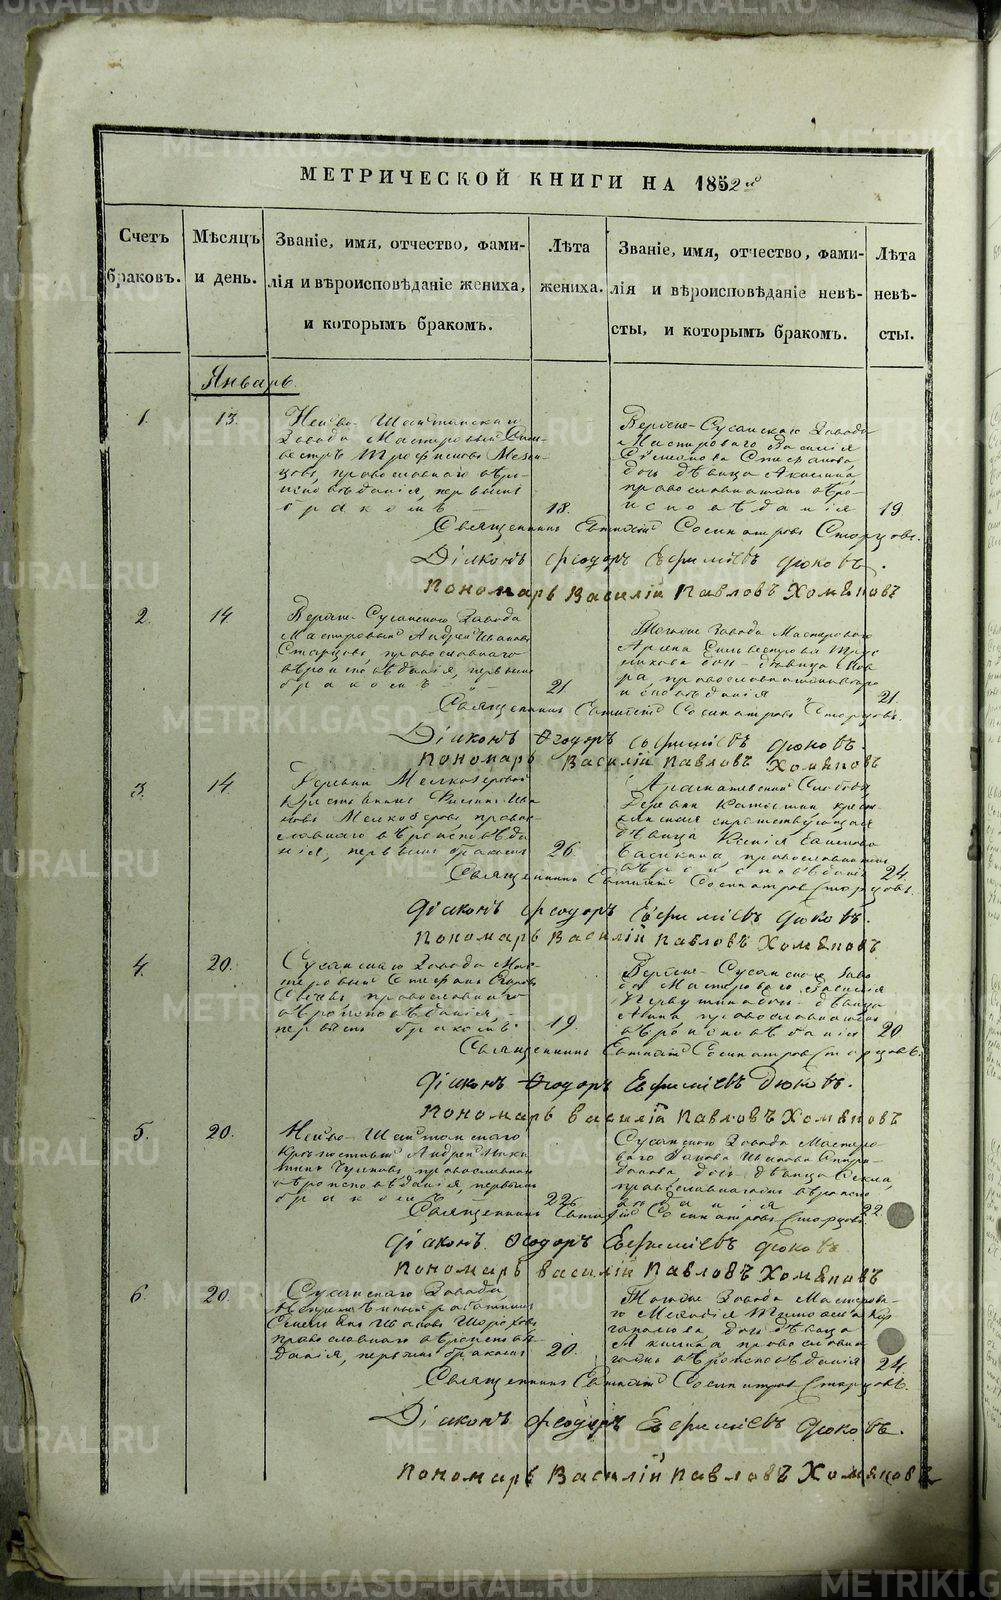 МЕТРИЧЕСКОЙ КНИГИ НА 1852й
Счетъ браковъ.
Мѣсяцъ и день.
Званіе, имя, отчество, фами-
лія и вѣроисповѣданіе жениха,
и которымъ бракомъ.
Лѣта
жениха.
Званіе, имя, отчество, фами-
лія и вѣроисповѣданіе невѣ-
сты, и которымъ бракомъ.
Лѣта
невѣ-
сты.
Январь.
1. 13.
Нейво-Шайтанскаго
Завода Мастеровый
Трофимовъ
православнаго вѣро-
исповѣданія, первымъ
бракомъ
18.
Верхне-Сусанскаго Завода
Мастероваго Василія
Семенова Степанова
дочь дѣвица Акилина,
православнагожъ вѣро-
исповѣданія
19
Священникъ Евтихій Сосипатровъ Старцовъ.
Діаконъ Ѳеодоръ Ефиміевъ Дюковъ.
Пономарь Василій Павловъ Хомяковъ
2. 14
Верхне-Сусанскаго Завода
Мастеровый Андрей Ивановъ
Старцовъ, православнаго
вѣроисповѣданія, первымъ
бракомъ
21
Тогоже Завода Мастероваго
дочь дѣвица
исповѣданія
21.
Священникъ Евтихій Сосипатровъ Старцовъ.
Діаконъ Ѳеодоръ Ефиміевъ Дюковъ.
Пономарь Василій Павловъ Хомяковъ
3. 14
Деревни Мелкозеровой
Крестьянинъ Филипъ Ива-
новъ Мелкозеровъ, право-
славнаго вѣроисповѣда-
нія, первымъ бракомъ
26.
Арамашевской Слободы
Деревни
дѣвица Ксенія
православнагожъ
вѣроисповѣданія
24.
Священникъ Евтихій Сосипатровъ Старцовъ.
Діаконъ Ѳеодоръ Ефиміевъ Дюковъ.
Пономарь Василій Павловъ Хомяковъ
4. 20.
Сусанскаго Завода Мас-
теровый Стефанъ
православнаго
вѣроисповѣданія,
первымъ бракомъ.
19.
Верхне-Сусанскаго Заво-
да Мастероваго Василія
дочь дѣвица
Анна православнагожъ
вѣроисповѣданія
20
Священникъ Евтихій Сосипатровъ Старцовъ.
Діаконъ Ѳеодоръ Ефиміевъ Дюковъ.
Пономарь Василій Павловъ Хомяковъ
5. 20.
Нейво-Шайтанскаго
Андрей Ники-
тинъ православнаго
вѣроисповѣданія, первымъ
бракомъ
22
Сусанскаго Завода Мастеро-
ваго Ивановъ Спири-
донова дочь дѣвица Ѳекла,
православнагожъ вѣроиспо-
вѣданія
22.
Священникъ Евтихій Сосипатровъ Старцовъ
Діаконъ Ѳеодоръ Ефиміевъ Дюковъ
Пономарь Василій Павловъ Хомяковъ
6. 20.
Сусанскаго Завода,
работникъ
Ивановъ Шороховъ
православнаго вѣроисповѣ-
данія, первымъ бракомъ
20.
Тогоже Завода Мастерова-
го Тимофѣева Кар-
гаполова дочь дѣвица
Акилина православна-
гожъ вѣроисповѣданія
24.
Священникъ Евтихій Сосипатровъ Старцовъ.
Діаконъ Ѳеодоръ Ефиміевъ Дюковъ.
Пономарь Василій Павловъ Хомяковъ
METRIKI.GASO-URAL.RU